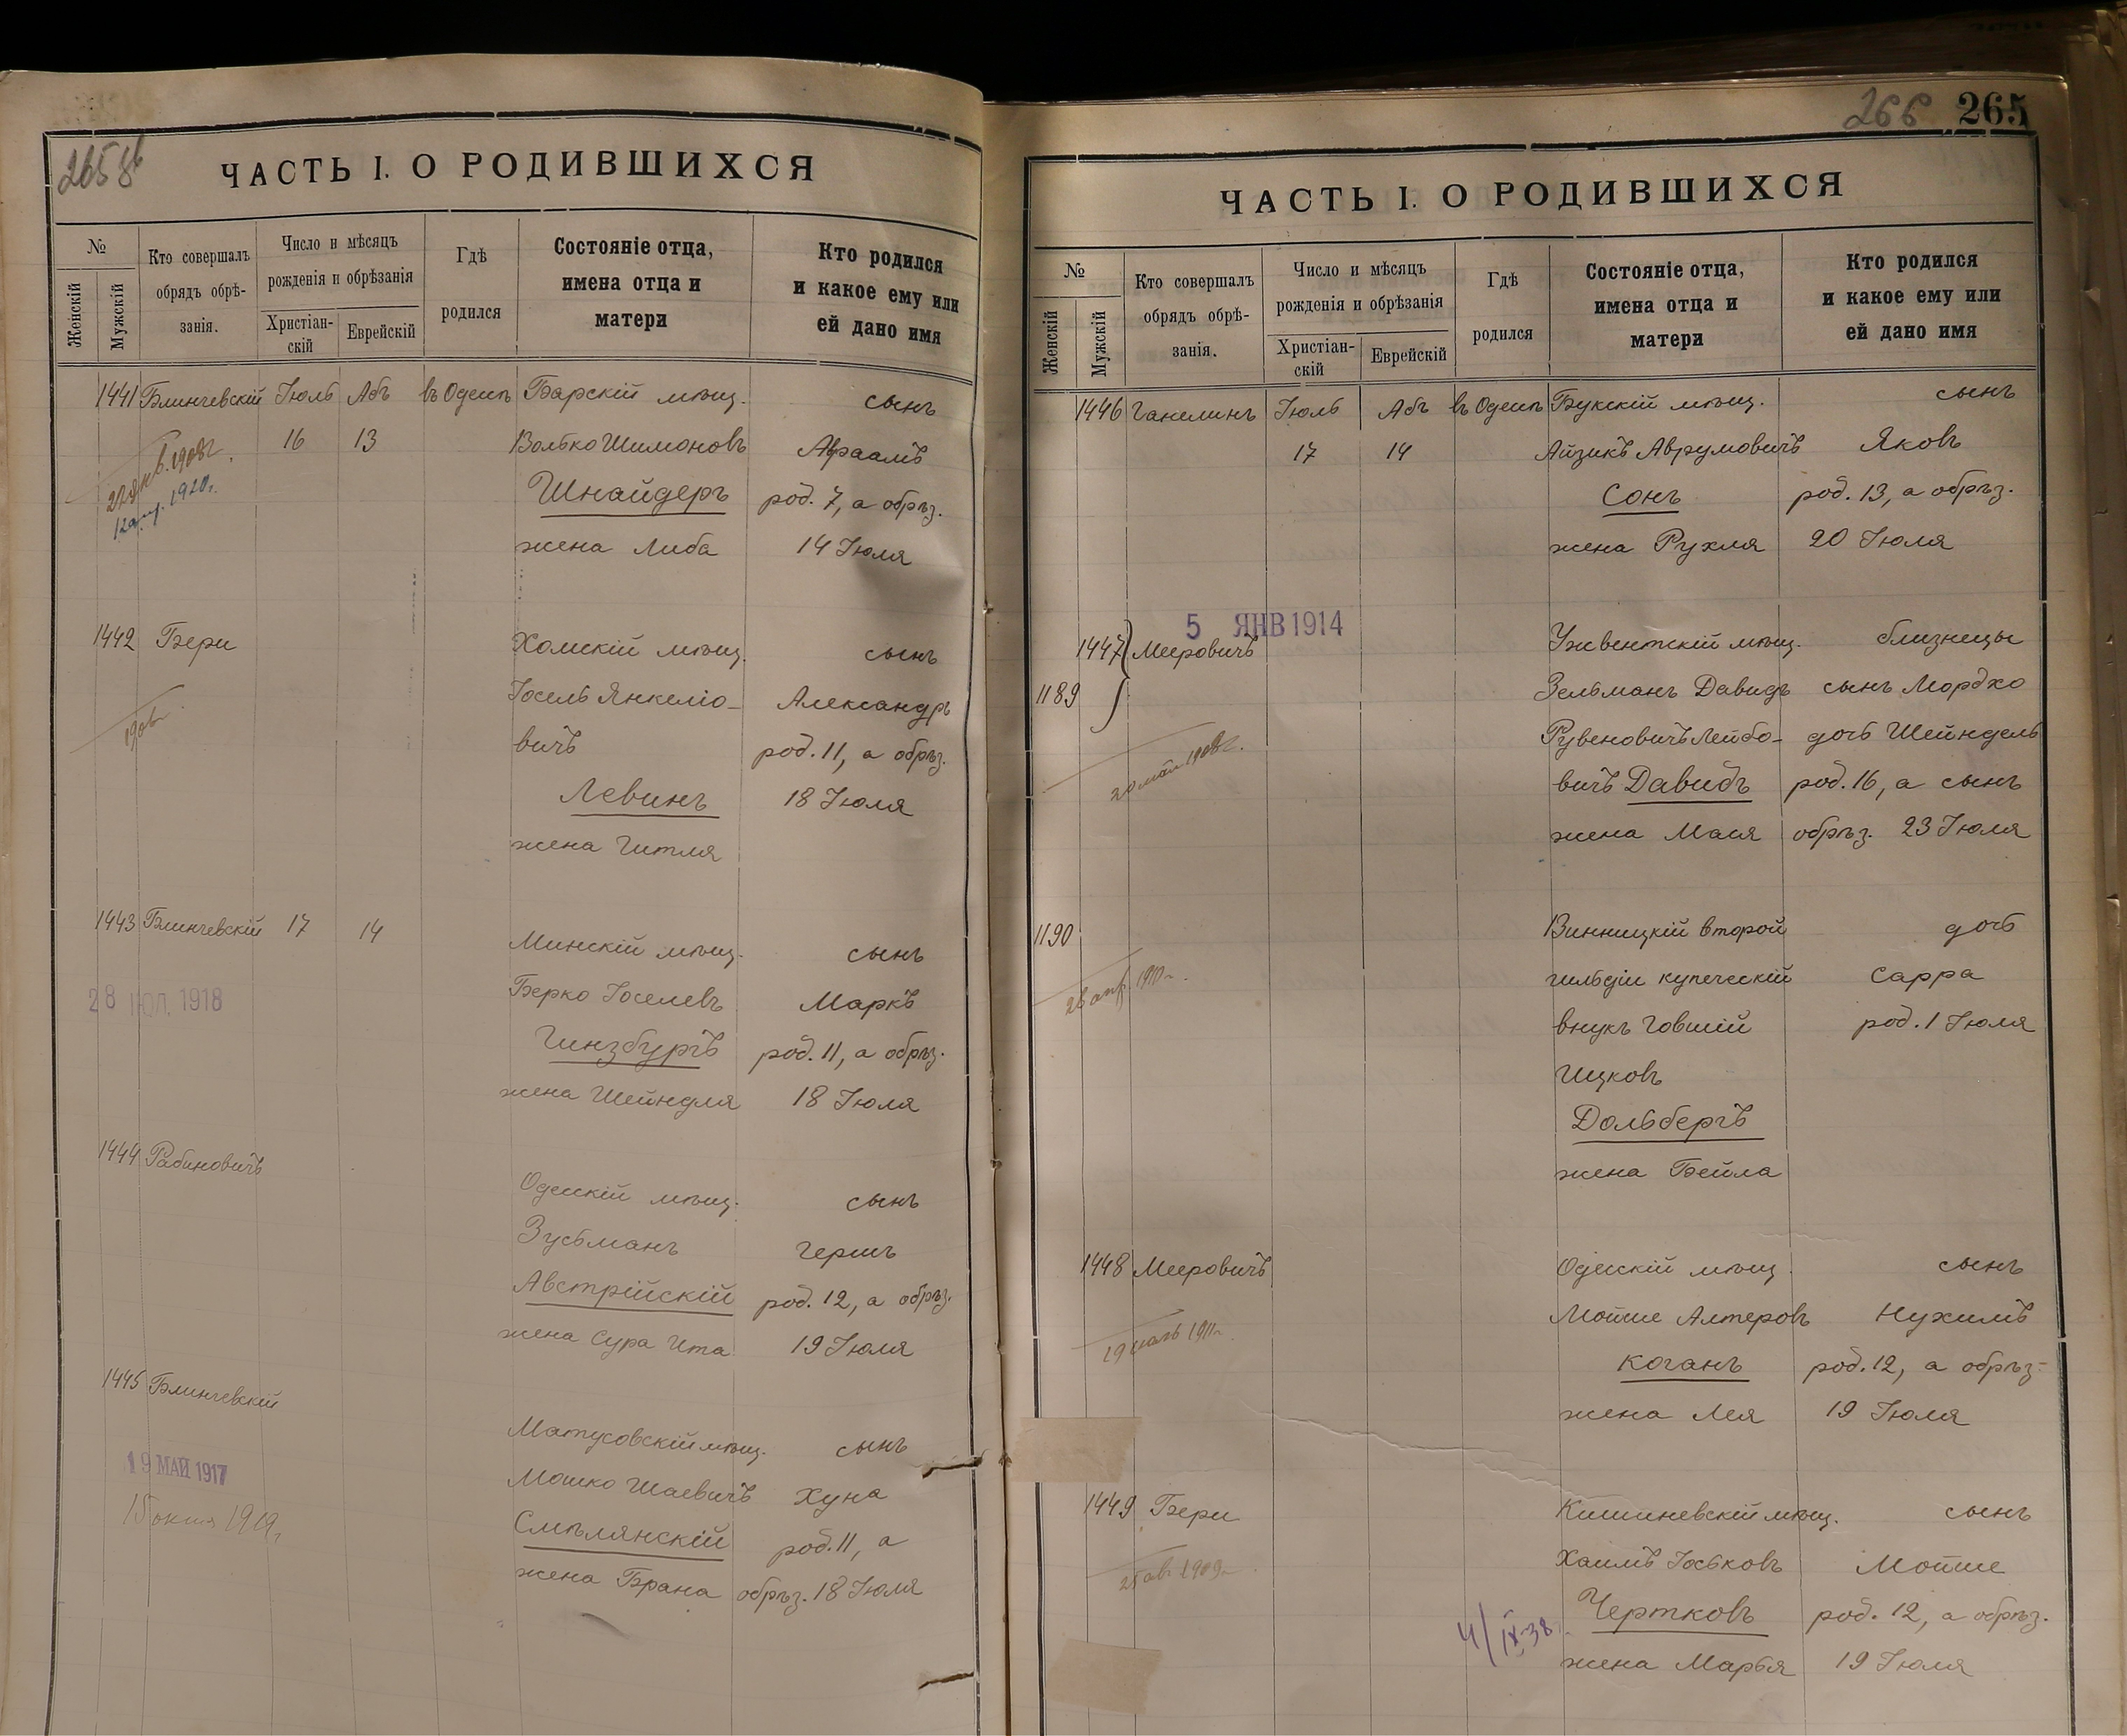 265 об
ЧАСТЬ I. О РОДИВШИХСЯ
№
Женскій
Мужскій
Кто совершалъ
обрядъ обрѣ-
занія.
Число и мѣсяцъ
рожденія и обрѣзанія
Христіан-
скій
Еврейскій
Гдѣ
родился
Состояніе отца,
имена отца и
матери
Кто родился
и какое ему или
ей дано имя
1441 Блинчевскій Іюль Абъ въ Одессѣ Барскій мѣщ. сынъ
16 13 Волько Шимоновъ Авраамъ
Шнайдеръ род. 7, а обрѣз.
жена Либа 14 Іюля
1920г.
1442 Бери Хомскій мѣщ. сынъ
Іосель Янкеліо- Александръ
вичъ род. 11, а обрѣз.
Левинъ 18 Іюля
жена Гитля
1443 Блинчевскій 17 14 Минскій мѣщ. сынъ
Берко Іоселевъ Маркъ
28 ІЮЛ. 1918
Гинзбургъ род. 11, а обрѣз.
жена Шейндля 18 Іюля
1444 Рабиновичъ Одесскій мѣщ. сынъ
Зусьманъ Гершъ
Австрійскій род. 12, а обрѣз.
жена Сура Ита 19 Іюля
1445 Блинчевскій Матусовскій мѣщ. сынъ
19 МАЙ 1917
Мошко Шаевичъ Хуна
Смѣлянскій род. 11, а
жена Брана обрѣз. 18 Іюля
266 265
ЧАСТЬ I. О РОДИВШИХСЯ
№
Женскій
Мужскій
Кто совершалъ
обрядъ обрѣ-
занія.
Число и мѣсяцъ
рожденія и обрѣзанія
Христіан-
скій
Еврейскій
Гдѣ
родился
Состояніе отца,
имена отца и
матери
Кто родился
и какое ему или
ей дано имя
1446 Ганелинъ Іюль Абъ въ Одессѣ Букскій мѣщ. сынъ
17 14 Айзикъ Аврумовичъ Яковъ
Сонъ род. 13, а обрѣз.
жена Рухля 20 Іюля
5 ЯНВ 1914
1447 Мееровичъ Ужвентскій мѣщ. близнецы
1189 Зельманъ Давидъ сынъ Мордхо
Рувеновичъ Лейбо- дочь Шейндель
20 мая 1908г.
вичъ Давидъ род. 16, а сынъ
жена Мася обрѣз. 23 Іюля
1190 Винницкій второй дочь
гильдіи купеческій Сарра
26 апр. 1910г.
внукъ Говшій род. 1 Іюля
Ицковъ
Дольбергъ
жена Бейла
1448 Мееровичъ Одесскій мѣщ. сынъ
Мойше Алтеровъ Нухимъ
Коганъ род. 12, а обрѣз.
жена Лея 19 Іюля
1449 Бери Кишиневскій мѣщ. сынъ
Хаимъ Іоськовъ Мойше
Чертковъ род. 12, а обрѣз.
4/IX-38
жена Марья 19 Іюля